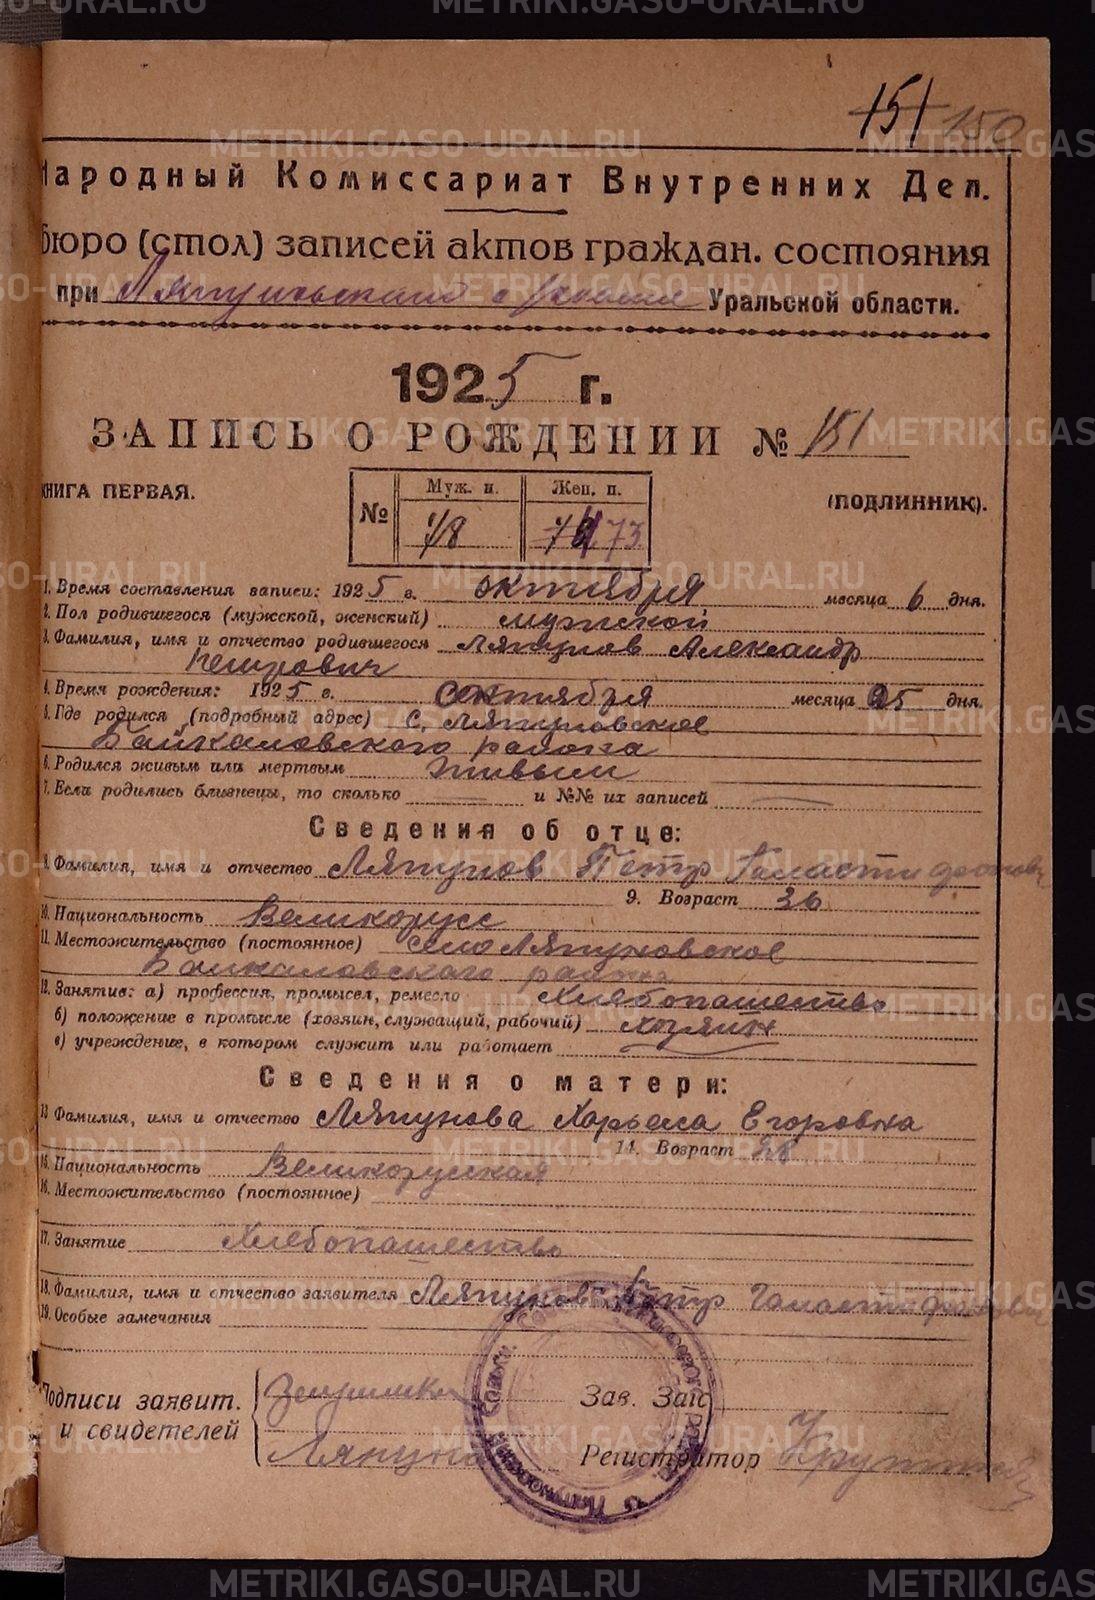 METRIKI.GASO-URAL.RU
151 150
Народный Комиссариат Внутренних Дел.
бюро (стол) записей актов граждан. состояния
при Уральской области.
1925 г.
ЗАПИСЬ О РОЖДЕНИИ № 151
КНИГА ПЕРВАЯ.
(ПОДЛИННИК).
№ Муж. п. Жен. п.
78 73
1. Время составления записи: 1925 г. октября месяца 6 дня.
2. Пол родившегося (мужской, женский) мужской
3. Фамилия, имя и отчество родившегося Ляпунов Александр
Петрович
4. Время рождения: 1925 г. сентября месяца 25 дня.
5. Где родился (подробный адрес) С. Ляпуновское
Байкаловского района
6. Родился живым или мертвым живым
7. Если родились близнецы, то сколько — и №№ их записей —
Сведения об отце:
8. Фамилия, имя и отчество Ляпунов Петр
9. Возраст 36
10. Национальность Великорусс
11. Местожительство (постоянное) село Ляпуновское
Байкаловского района
12. Занятие: а) профессия, промысел, ремесло Хлебопашество
б) положение в промысле (хозяин, служащий, рабочий) хозяин
в) учреждение, в котором служит или работает
Сведения о матери:
13. Фамилия, имя и отчество Ляпунова Егоровна
14. Возраст 38
15. Национальность Великорусская
16. Местожительство (постоянное)
17. Занятие Хлебопашество
18. Фамилия, имя и отчество заявителя Ляпунов Петр
19. Особые замечания
Подписи заявит.
и свидетелей
Ляпунов
Зав. Загс
Регистратор